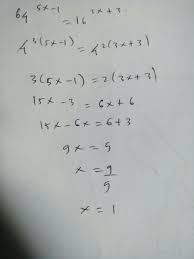 64^(5x-1) = 16^(3x+3)
4^3(5x-1) = 4^2(3x+3)
3(5x-1) = 2(3x+3)
15x - 3 = 6x + 6
15x - 6x = 6 + 3
9x = 9
x = 9/9
x = 1